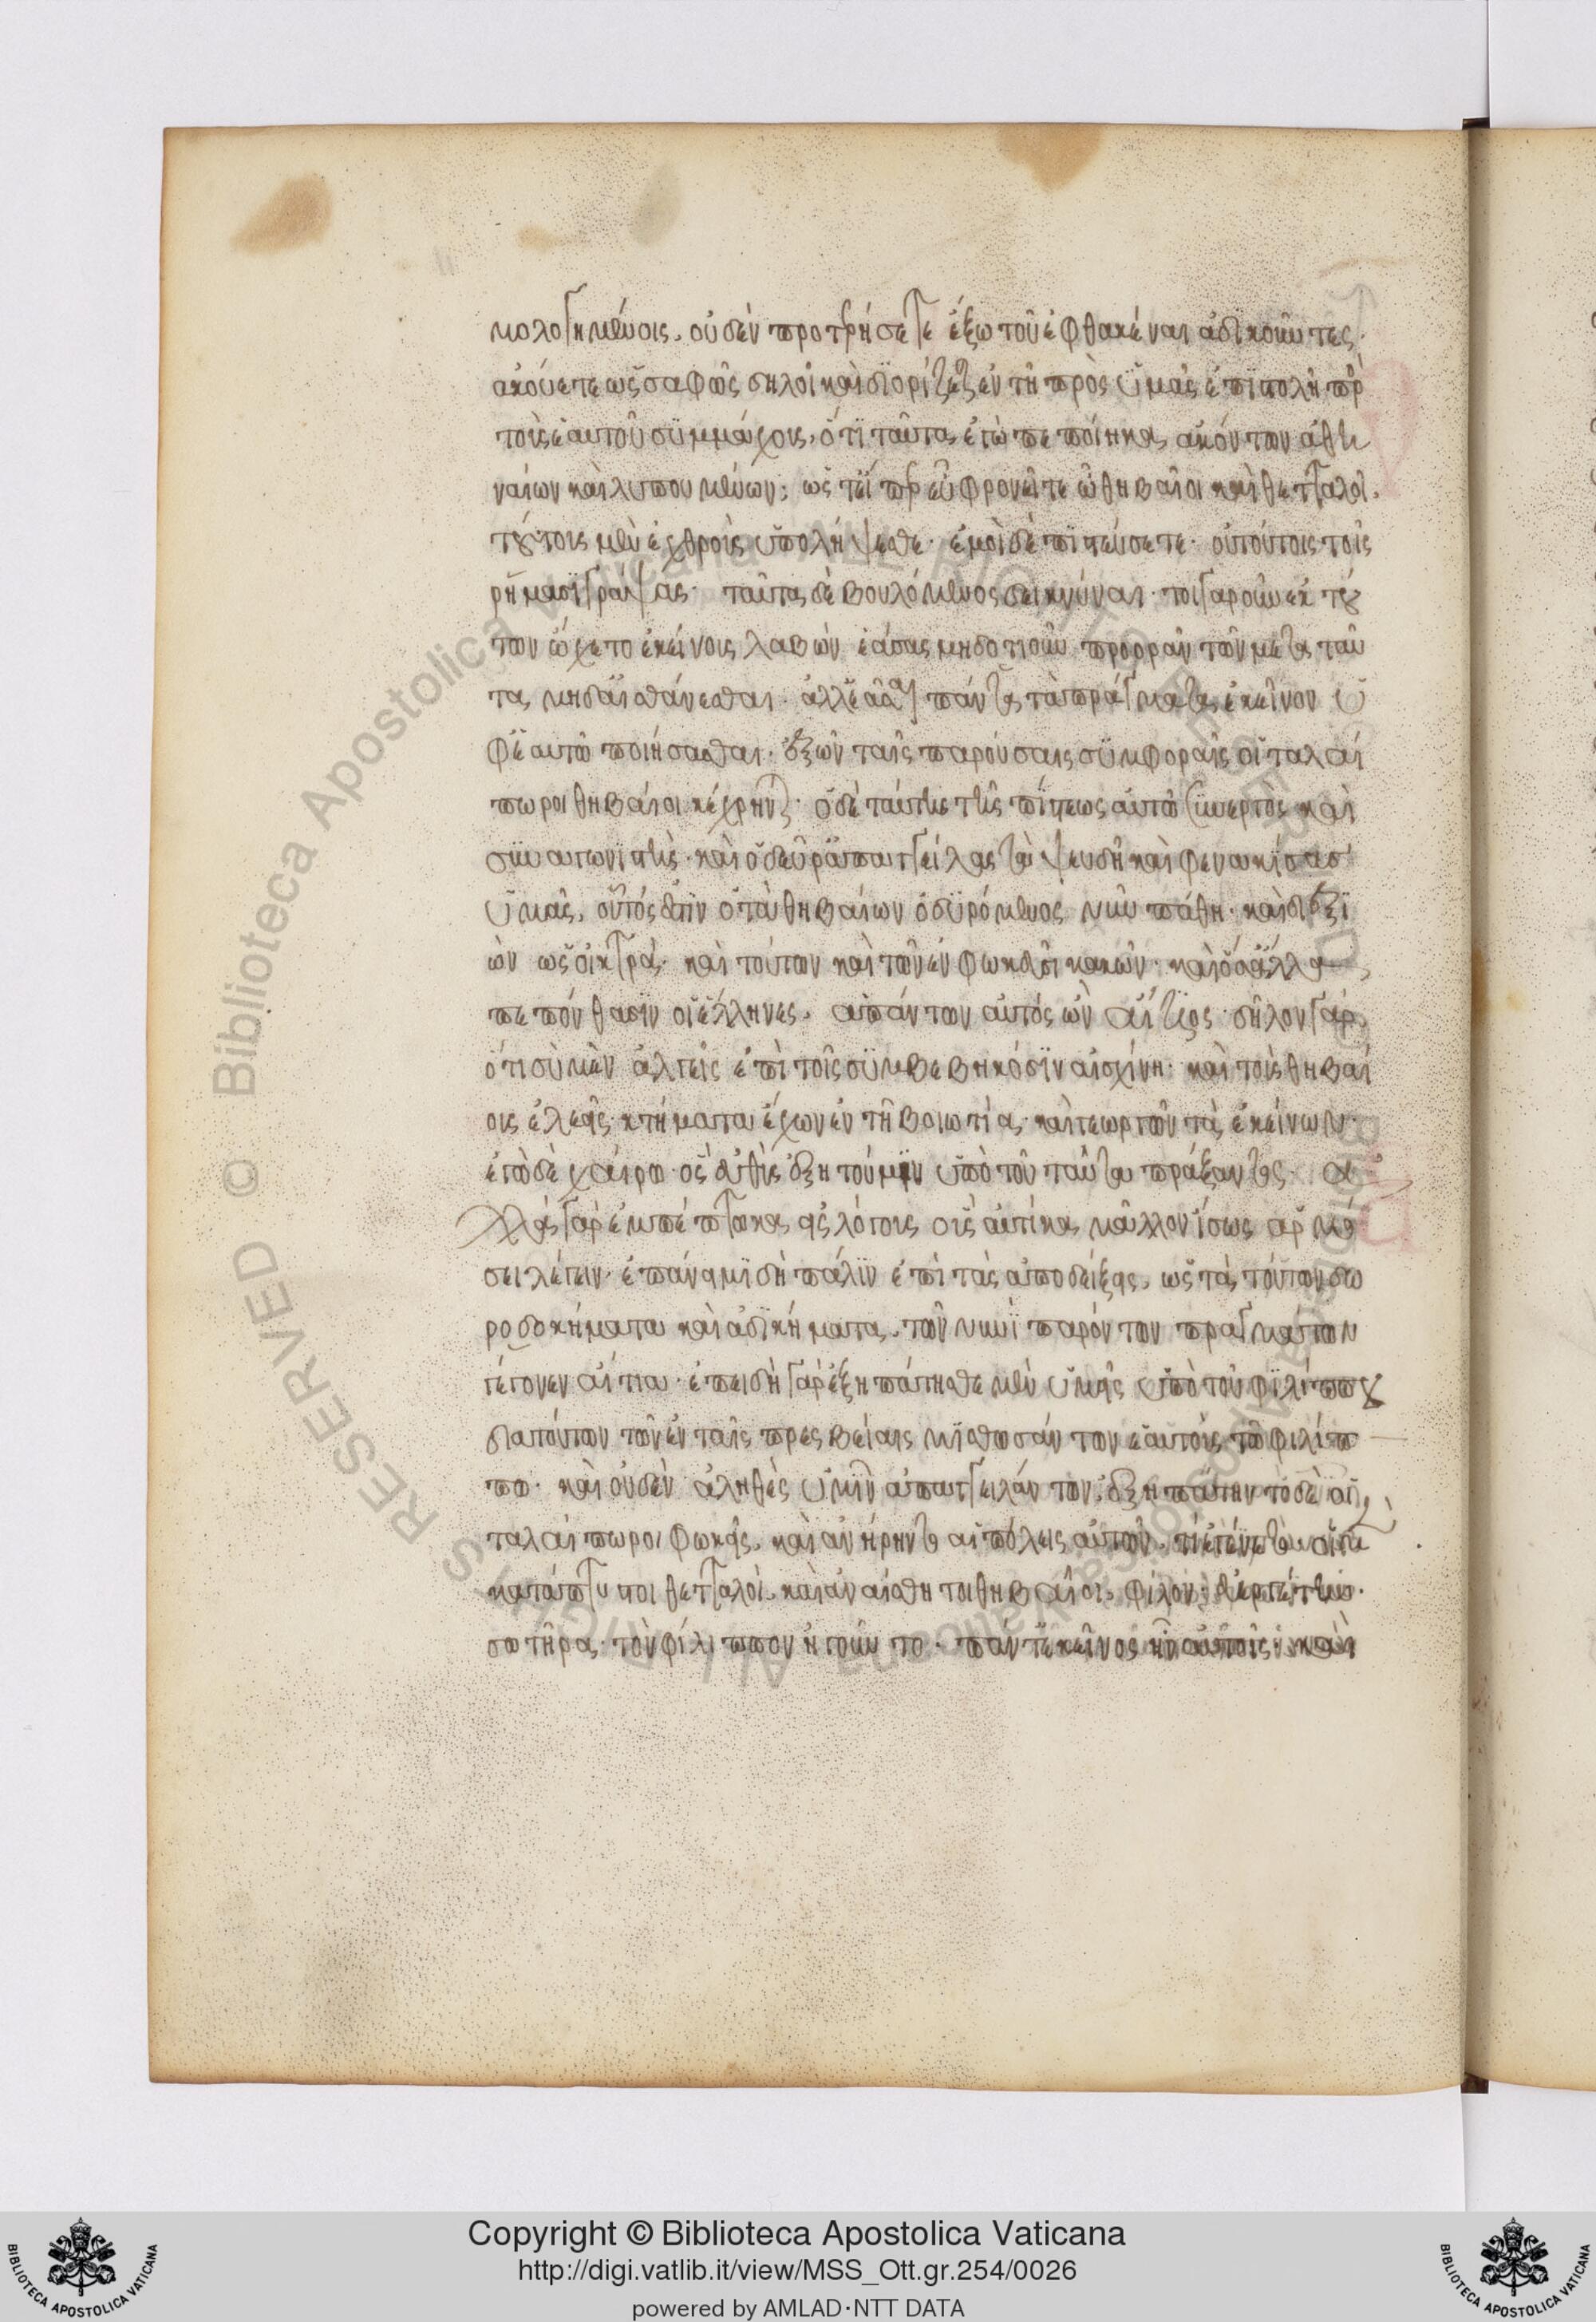 μολογημένοις, οὐδὲν προτιμήσετε ἔξω τοῦ ἐφθακέναι ἀδικοῦντες.
ἀκούετε ὡς σαφῶς δηλοῖ καὶ διορίζεται ἐν τῆ πρὸς ὑμᾶς ἐπιστολῆ πρὸς
τοὺς ἑαυτοῦ συμμάχους, ὅτι ταῦτα ἐγὼ πεποίηκα ἀκόντων ἀθη
ναίων καὶ λυπουμένων· ὡς τ' εἴπερ εὖ φρονεῖτε ὦ θηβαῖοι καὶ θετταλοὶ,
τούτους μὲν ἐχθροὺς ὑπολήψεσθε· ἐμοὶ δὲ πιστεύσετε· οὐ τούτοις τοῖς
ῥήμασι γράψας· ταῦτα δὲ βουλόμενος δεικνύναι· τοιγαροῦν ἐκ τού
των ὤχετο ἐκείνους λαβὼν εἰς τὸ μηδοτιοῦν προορᾶν τῶν μετὰ ταῦ
τα μηδ' αἰσθάνεσθαι· ἀλλ' ἐᾶσαι πάντα τὰ πράγματα ἐκεῖνον ὑ
φ' ἑαυτῶ ποιήσασθαι· ἐξ ὧν ταῖς παρούσαις συμφοραῖς οἱ ταλαί
πωροι θηβαῖοι κέχρηνται· ὁ δὲ ταύτης τῆς πίστεως αὐτῶ συνεργὸς καὶ
συναγωνιστὴς· καὶ ὁ δεῦρ' ἀπαγγείλας τὰ ψευδῆ καὶ φενακίσας
ὑμᾶς, οὗτός ἐστιν ὁ τὰ θηβαίων ὀδυρόμενος νῦν πάθη· καὶ διεξι
ὼν ὡς οἰκτρά· καὶ τούτων καὶ τῶν ἐν φωκεῦσι κακῶν· καὶ ὅσ' ἄλλα
πεπόνθασιν οἱ ἕλληνες, ἁπάντων αὐτὸς ὢν αἴτιος· δῆλον γὰρ
ὅτι σὺ μὲν ἀλγεῖς ἐπὶ τοῖς συμβεβηκόσιν αἰσχίνη· καὶ τοὺς θηβαί
ους ἐλεεῖς· κτήματα ἔχων ἐν τῆ βοιωτία, καὶ γεωργῶν τὰ ἐκείνων·
ἐγὼ δὲ χαίρω· ὃς εὐθὺς ἐξητούμην ὑπὸ τοῦ ταῦτα πράξαντος· ἀ
λλὰ γὰρ ἐμπέπτωκα εἰς λόγους οὓς αὐτίκα μᾶλλον ἴσως ἁρμό
σει λέγειν· ἐπάνειμι δὴ πάλιν ἐπὶ τὰς ἀποδείξεις, ὡς τὰ τούτων δω
ροδοκήματα καὶ ἀδικήματα, τῶν νυνὶ παρόντων πραγμάτων
γέγονεν αἴτια· ἐπειδὴ γὰρ ἐξηπάτησθε μὲν ὑμεῖς ὑπὸ τοῦ φιλίππου
διὰ τούτων τῶν ἐν ταῖς πρεσβείαις μισθωσάντων ἑαυτοὺς τῶ φιλίπ
πω· καὶ οὐδὲν ἀληθὲς ὑμῖν ἀπαγγειλάντων, ἐξηπάτηντο δὲ οἱ
ταλαίπωροι φωκεῖς, καὶ ἀνήρηντο αἱ πόλεις αὐτῶν, τί ἐγένετο; οἱ μὲν
κατάπτυστοι θετταλοὶ, καὶ ἀναίσθητοι θηβαῖοι, φίλον· εὐεργέτην·
σωτῆρα· τὸν φίλιππον ἡγοῦντο· πάντ' ἐκεῖνος ἦν αὐτοῖς· καὶ
Copyright © Biblioteca Apostolica Vaticana
http://digi.vatlib.it/view/MSS_Ott.gr.254/0026
powered by AMLAD·NTT DATA